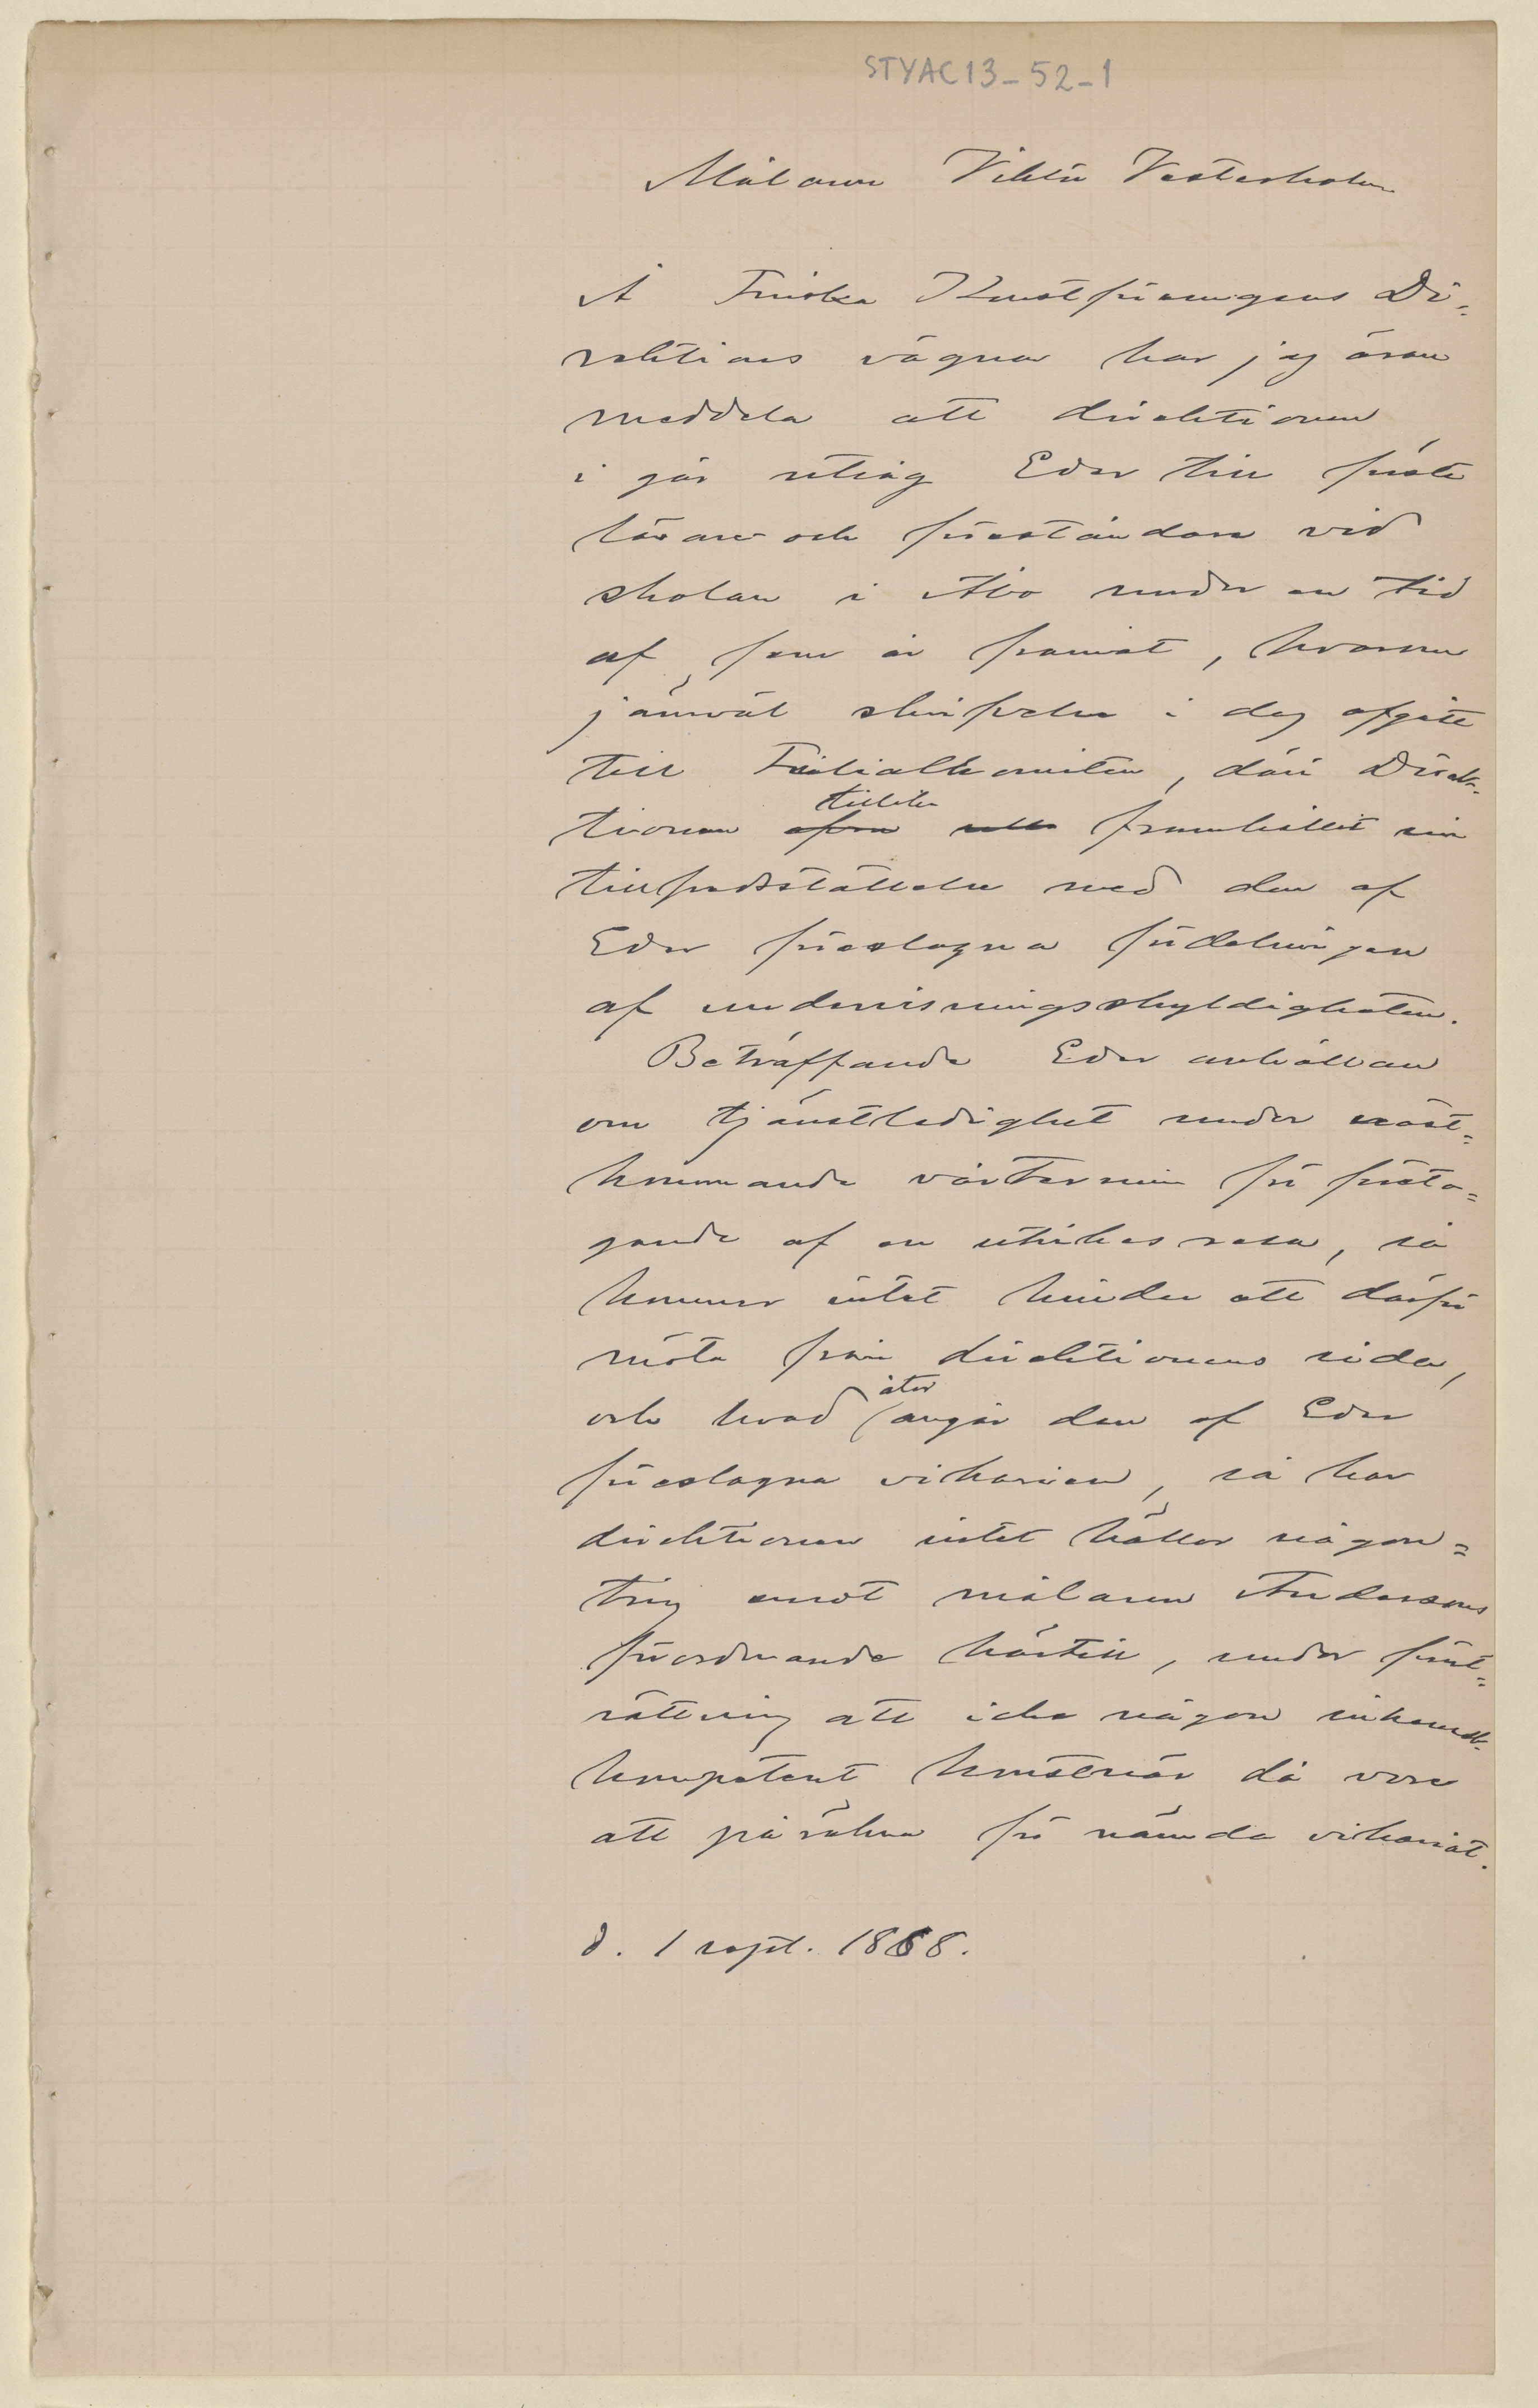 STYAC13-52-1
Målaren Viktor Vesterholm
Å Finska Konstföreningens Di-
rektions vägnar har jag äran
meddela att direktionen
i går utsåg Eder till förste
lärare och föreståndare vid
skolan i Åbo under en tid
af fem år framåt, hvarom
jämväl skrifvelse i dag afgått
till Filialkomiten, däri Direk-
tionen tillika framhållit sin
tillfredsställelse med den af
Eder föreslagna fördelningen
af undervisningsskyldigheten.
Beträffande Eder anhållan
om tjänstledighet under näst-
kommande vårtermin för företa-
gande af en utrikes resa, så
kommer intet hinder att därför
möta från direktionens sida,
och hvad åter angår den af Eder
föreslagna vikarien, så har
direktionen intet häller någon-
ting emot målaren Anderssons
förordnande härtill, under förut-
sättning att icke någon inhemsk
kompetent konstnär då vore
att påräkna för nämda vikariat.
d. 1 sept. 1888.